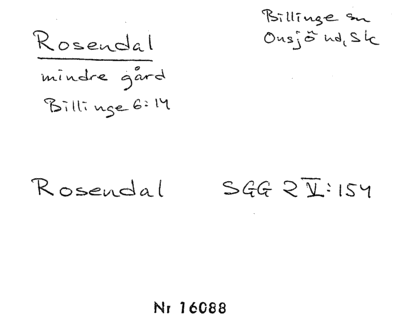 Rosendal
mindre gård
Billinge 6:14
Billinge sn
Onsjö hd, Sk
Rosendal SGG 2 V:154
Nr 16088